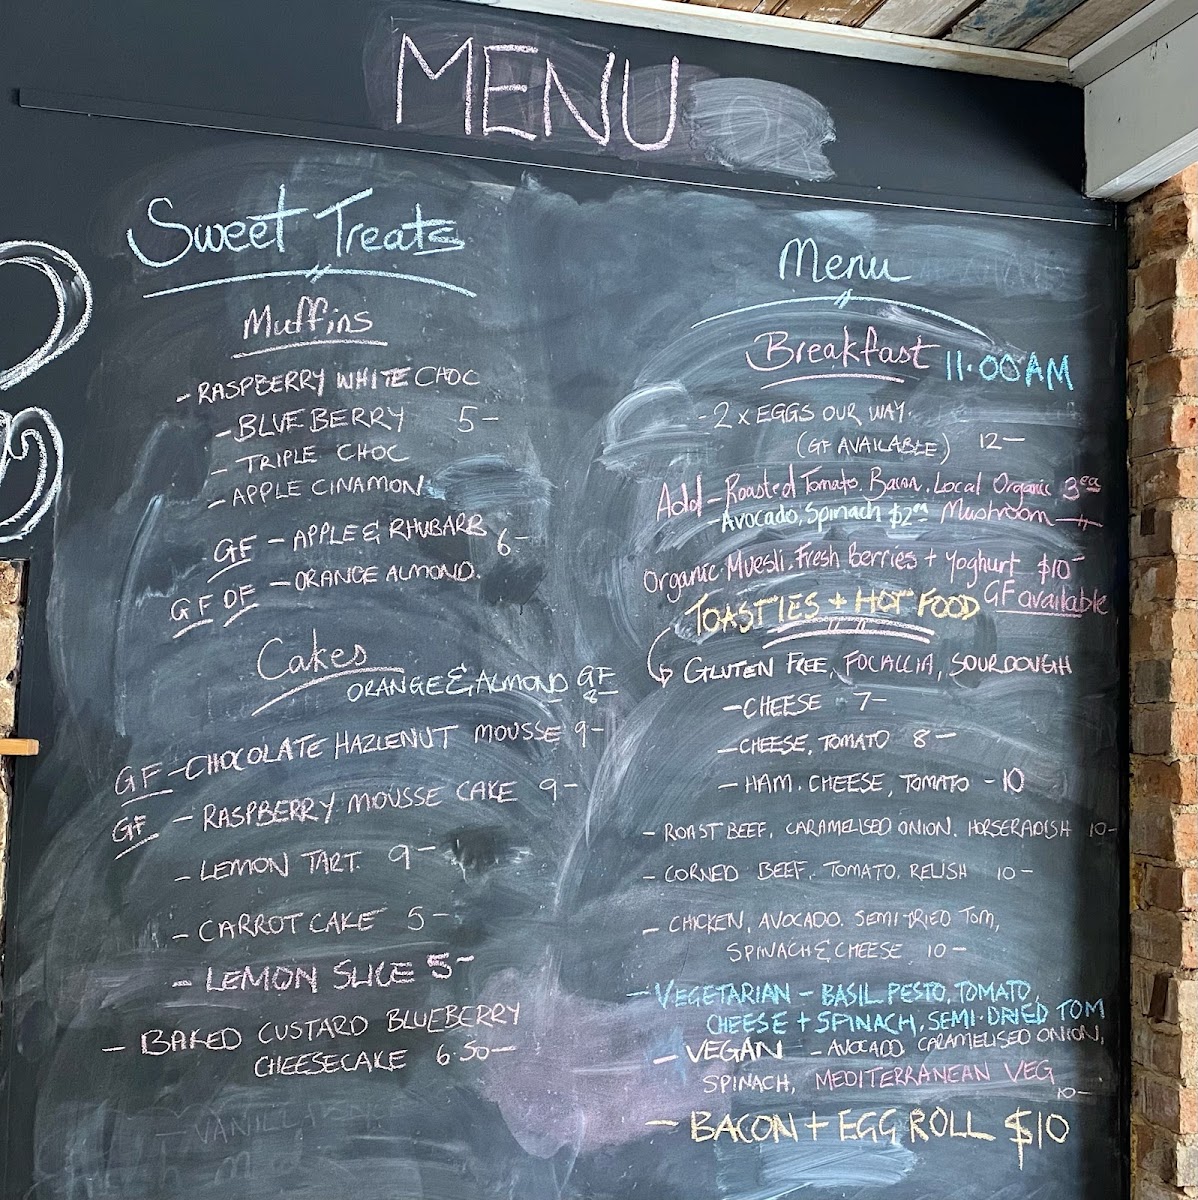 MENU
Sweet Treats
Muffins
- RASPBERRY WHITE CHOC
- BLUEBERRY 5-
- TRIPLE CHOC
- APPLE CINAMON
GF - APPLE & RHUBARB 6-
GF DF - ORANGE ALMOND.
Cakes
ORANGE & ALMOND GF 8-
GF - CHOCOLATE HAZLENUT MOUSSE 9-
GF - RASPBERRY MOUSSE CAKE 9-
- LEMON TART. 9-
- CARROT CAKE 5-
- LEMON SLICE 5-
- BAKED CUSTARD BLUEBERRY
CHEESECAKE 6.50-
- VANILL
Menu
Breakfast 11.00AM
- 2 x EGGS OUR WAY.
(GF AVAILABLE) 12-
Add - Roasted Tomato, Bacon, Local Organic 3ea
Avocado, Spinach $2ea Mushroom
Organic Muesli, Fresh Berries + Yoghurt $10-
GF available
TOASTIES + HOT FOOD
GLUTEN FREE, FOCALLIA, SOURDOUGH
- CHEESE 7-
- CHEESE, TOMATO 8-
- HAM. CHEESE, TOMATO - 10
- ROAST BEEF, CARAMELISED ONION. HORSERADISH 10-
- CORNED BEEF, TOMATO, RELISH 10-
- CHICKEN, AVOCADO. SEMI-DRIED TOM,
SPINACH & CHEESE 10-
- VEGETARIAN - BASIL PESTO, TOMATO,
CHEESE + SPINACH, SEMI-DRIED TOM
- VEGAN - AVOCADO, CARAMELISED ONION,
SPINACH, MEDITERRANEAN VEG
10-
- BACON + EGG ROLL $10